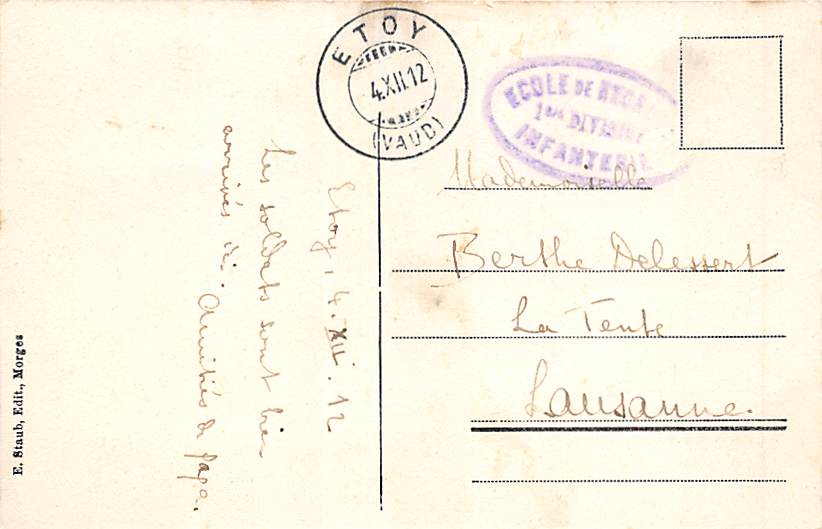 ETOY
4.XII.12
(VAUD)
ECOLE DE RECRUES
1ère DIVISION
INFANTERIE
Etoy, 4. XII. 12
Les soldats sont bien
arrivés ici. Amitiés de papa.
Mademoiselle
Berthe Delessert
La Tente
Lausanne.
E. Staub, Edit., Morges